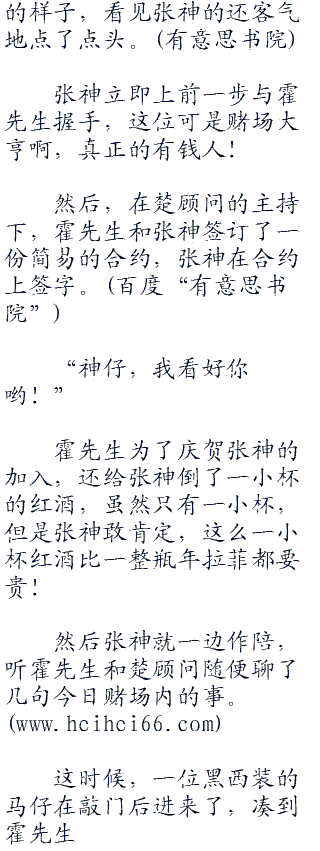 的样子，看见张神的还客气
地点了点头。(有意思书院)
张神立即上前一步与霍
先生握手，这位可是赌场大
亨啊，真正的有钱人！
然后，在楚顾问的主持
下，霍先生和张神签订了一
份简易的合约，张神在合约
上签字。(百度“有意思书
院”)
“神仔，我看好你
哟！”
霍先生为了庆贺张神的
加入，还给张神倒了一小杯
的红酒，虽然只有一小杯，
但是张神敢肯定，这么一小
杯红酒比一整瓶年拉菲都要
贵！
然后张神就一边作陪，
听霍先生和楚顾问随便聊了
几句今日赌场内的事。
(www.hcihci66.com)
这时候，一位黑西装的
马仔在敲门后进来了，凑到
霍先生